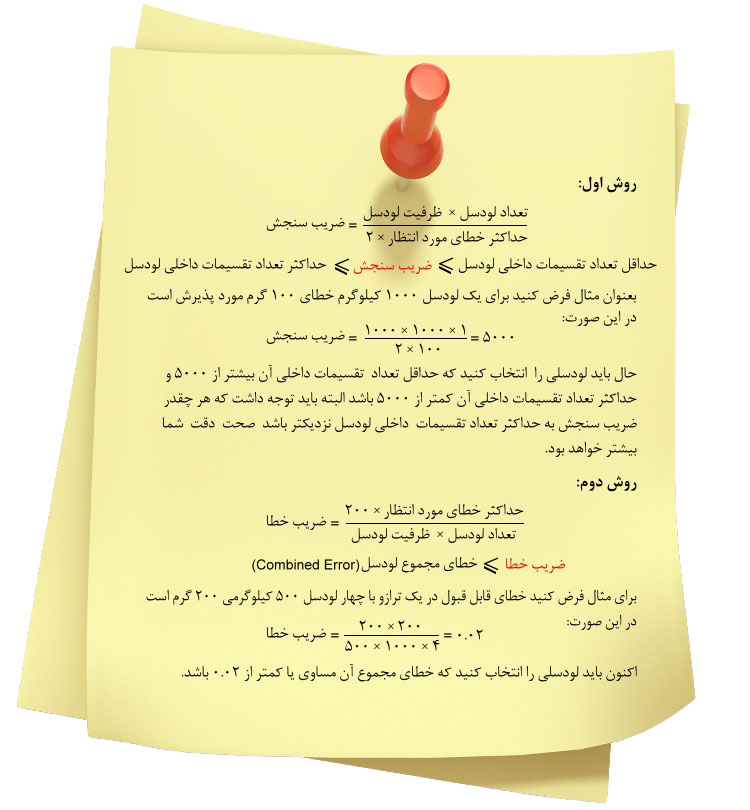 روش اول:
ضریب سنجش = تعداد لودسل × ظرفیت لودسل / حداکثر خطای مورد انتظار × ۲
حداقل تعداد تقسیمات داخلی لودسل ⩽ ضریب سنجش ⩽ حداکثر تعداد تقسیمات داخلی لودسل
بعنوان مثال فرض کنید برای یک لودسل ۱۰۰۰ کیلوگرم خطای ۱۰۰ گرم مورد پذیرش است
در این صورت:
ضریب سنجش = ۱۰۰۰ × ۱۰۰۰ × ۱ / ۲ × ۱۰۰ = ۵۰۰۰
حال باید لودسلی را انتخاب کنید که حداقل تعداد تقسیمات داخلی آن بیشتر از ۵۰۰۰ و
حداکثر تعداد تقسیمات داخلی آن کمتر از ۵۰۰۰ باشد البته باید توجه داشت که هر چقدر
ضریب سنجش به حداکثر تعداد تقسیمات داخلی لودسل نزدیکتر باشد صحت دقت شما
بیشتر خواهد بود.
روش دوم:
ضریب خطا = حداکثر خطای مورد انتظار × ۲۰۰ / تعداد لودسل × ظرفیت لودسل
ضریب خطا ⩽ خطای مجموع لودسل(Combined Error)
برای مثال فرض کنید خطای قابل قبول در یک ترازو با چهار لودسل ۵۰۰ کیلوگرمی ۲۰۰ گرم است
در این صورت:
ضریب خطا = ۲۰۰ × ۲۰۰ / ۵۰۰ × ۱۰۰۰ × ۴ = ۰.۰۲
اکنون باید لودسلی را انتخاب کنید که خطای مجموع آن مساوی یا کمتر از ۰.۰۲ باشد.